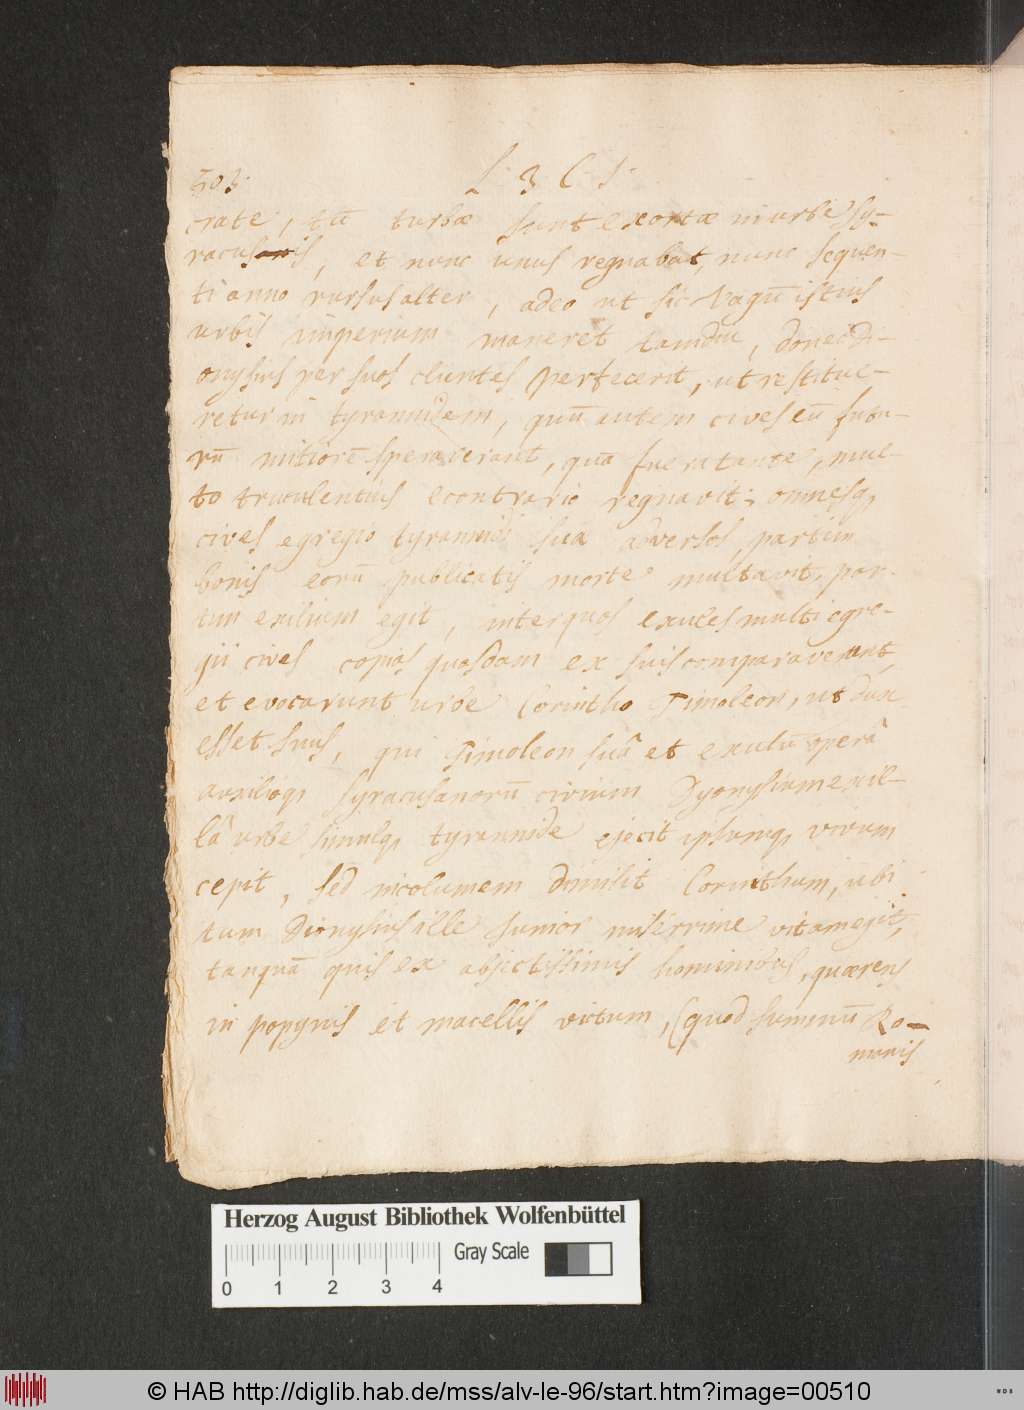 503. L. 3 C. 1.
crate, tū turbæ sunt exortæ in urbe Sy-
racusis, et nunc unus regnabat, nunc sequen-
ti anno rursus alter, adeo ut sic vagū istius
urbis imperium maneret tamdiu, donec Di-
onysius per suos clientes perfecerit, ut restitue-
retur in tyrannidem, quū autem cives eū futu-
rū mitiorē speraverant, quā fuerat ante, mul-
to truculentius econtrario regnavit; omnesq,
cives egregiò tyrannidi suæ adversos, partim
bonis eorū publicatis morte multavit, par-
tim exilium egit, inter quos exules multi egre-
gii cives copias quasdam ex suis comparaverunt,
et evocarunt urbe Corintho Timoleon, ut dux
esset suus, qui Timoleon suâ et exulū operâ
auxilioq, Syracusanorū civium Dyonysium ex il-
lâ urbe simulq, tyrannide ejecit ipsumq, vivum
cepit, sed incolumem dimisit Corinthum, ubi
tum Dionysius ille Junior miserrime vitam egit,
tanquā quis ex abjectissimis hominibus, quærens
in popynis et macellis victum, (quod summū Ro-
manis
Herzog August Bibliothek Wolfenbüttel
Gray Scale
0 1 2 3 4
© HAB http://diglib.hab.de/mss/alv-le-96/start.htm?image=00510